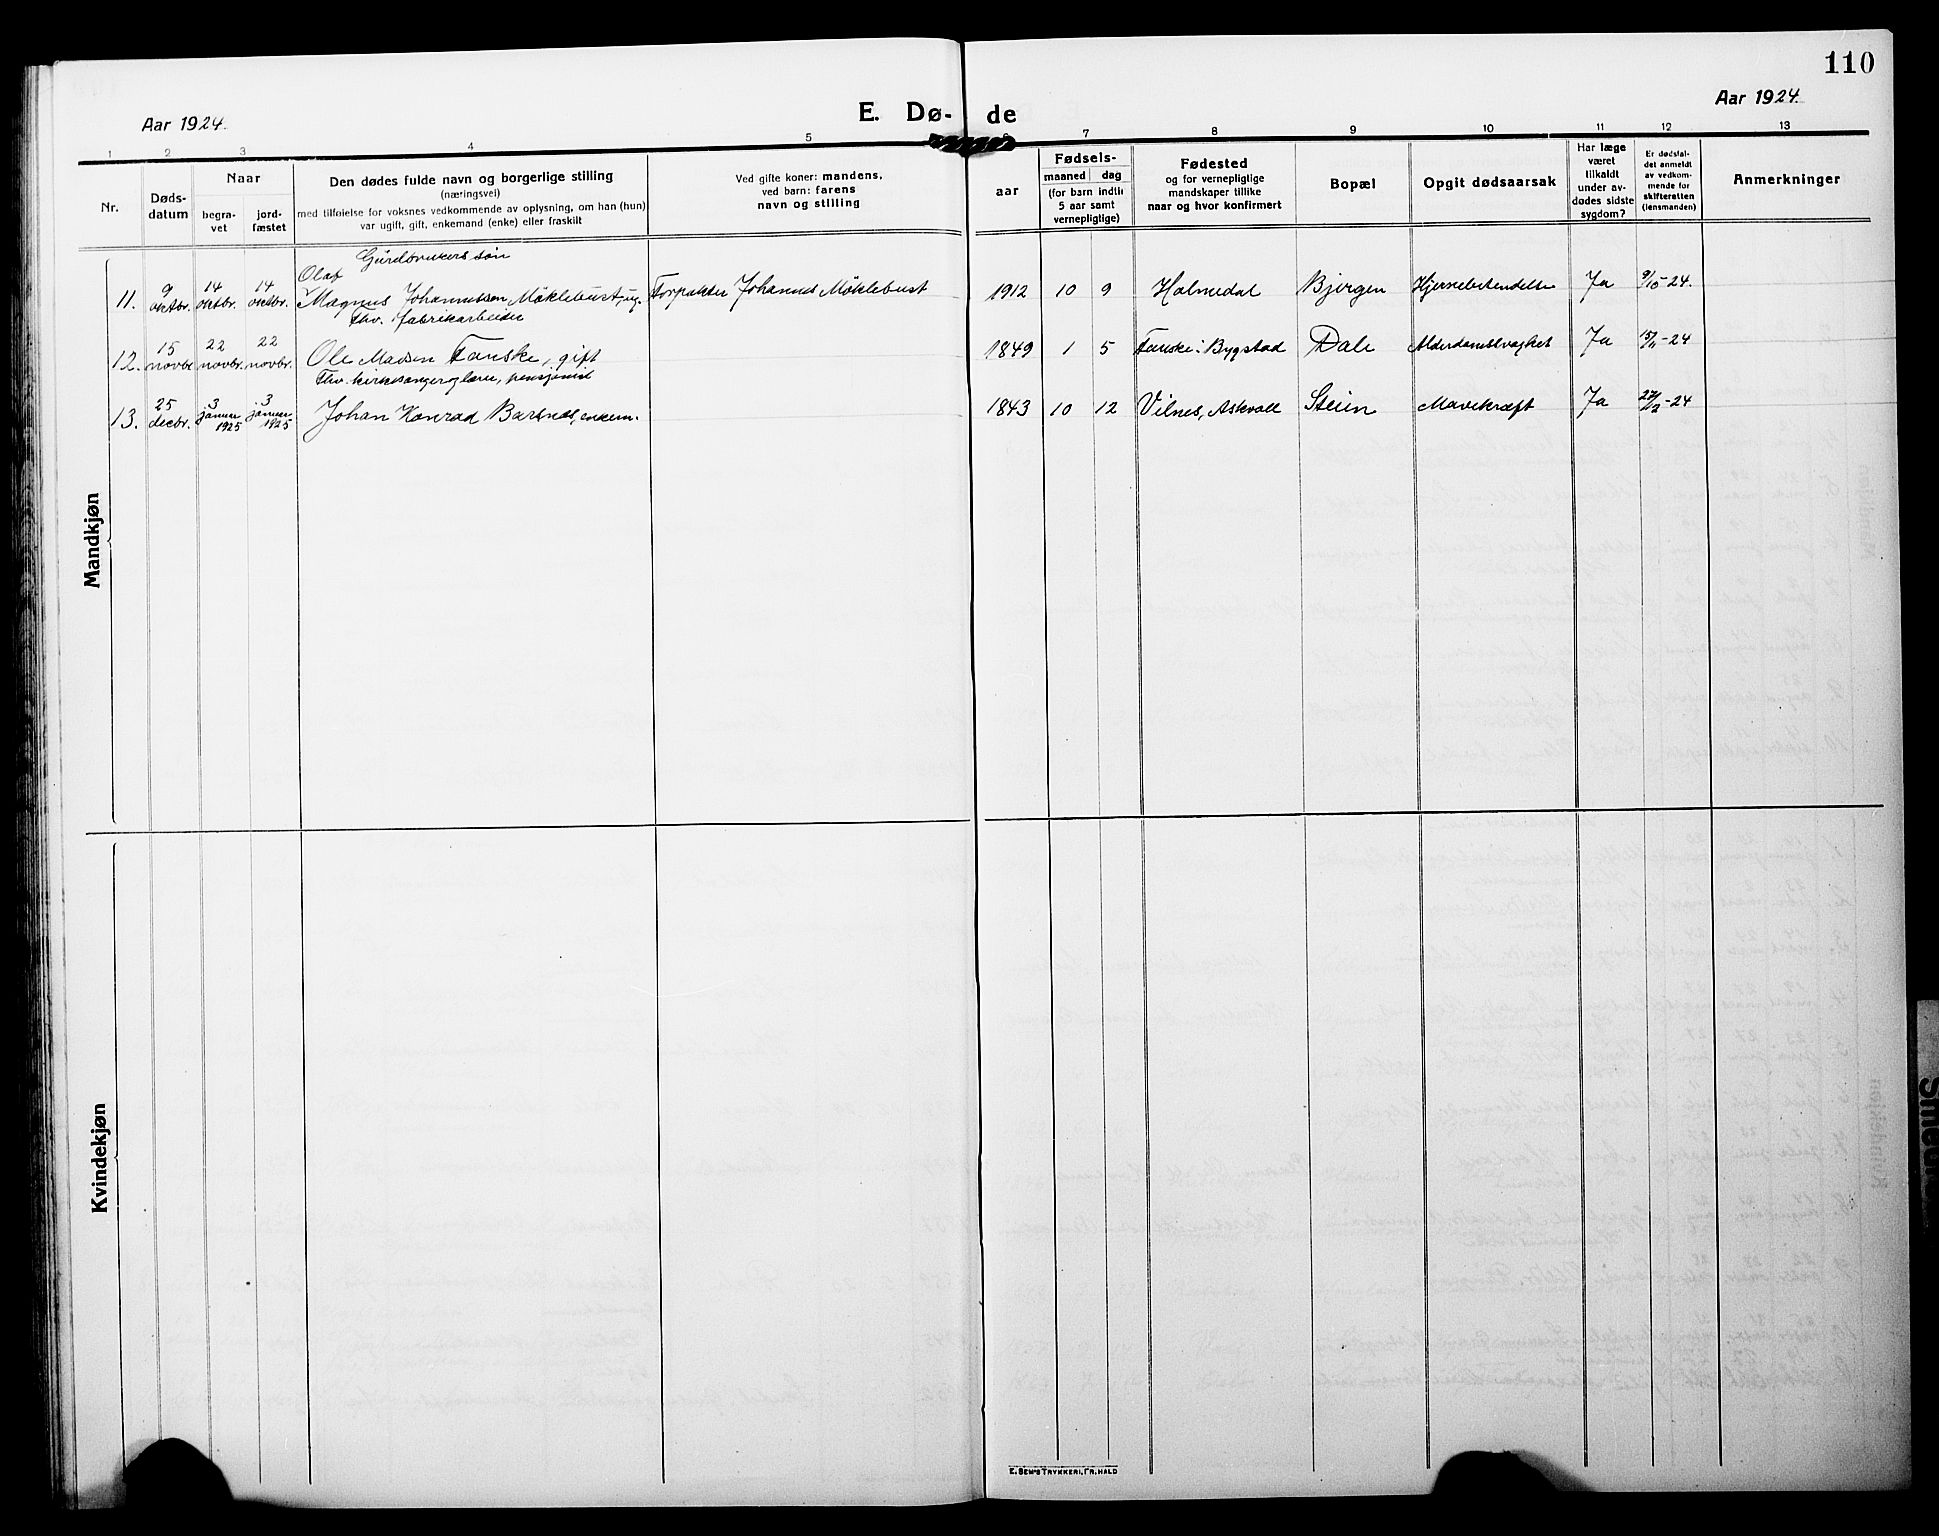 110
Aar 1924.
E. Dø-
de
Aar 1924.
1 2 3 4 5 6 7 8 9 10 11 12 13
Nr.
Døds-
datum
Naar
begra-
vet
jord-
fæstet
Den dødes fulde navn og borgerlige stilling
(næringsvei)
med tilføielse for voksnes vedkommende av oplysning, om han (hun)
var ugift, gift, enkemand (enke) eller fraskilt
Ved gifte koner: mandens,
ved barn: farens
navn og stilling
aar
Fødsels-
maaned dag
(for barn indtil
5 aar samt
vernepligtige)
Fødested
og for vernepligtige
mandskaper tillike
naar og hvor konfirmert
Bopæl
Opgit dødsaarsak
Har læge
været
tilkaldt
under av-
dødes sidste
sygdom?
Er dødsfal-
det anmeldt
av vedkom-
mende for
skifteretten
(lensmanden)
Anmerkninger
Mandkjøn
Gårdbrukers søn
Olaf
11. 9 oktbr. 14 oktbr. 14 oktbr. Magnus Johannessen Møklebust, ug. Forpakter Johannes Møklebust 1912 10 9 Holmedal Bjergen Hjernebetendelse Ja 9/10-24.
Fhv. fabrikarbeider
12. 15 novbr. 22 novbr. 22 novbr. Ole Madsen Fauske, gift 1849 1 5 Fauske i Bygstad Dale Alderdomssvaghet Ja 15/11-24
Fhv. kirkesanger og lærer, pensjonist
13. 25 decbr. 3 januar 1925 3 januar 1925 Johan Konrad Barsnes, enkem. 1843 10 12 Vilnes, Askvoll Steien Mavekræft Ja 27/12-24
Kvindekjøn
E. SEM'S TRYKKERI, FR.HALD